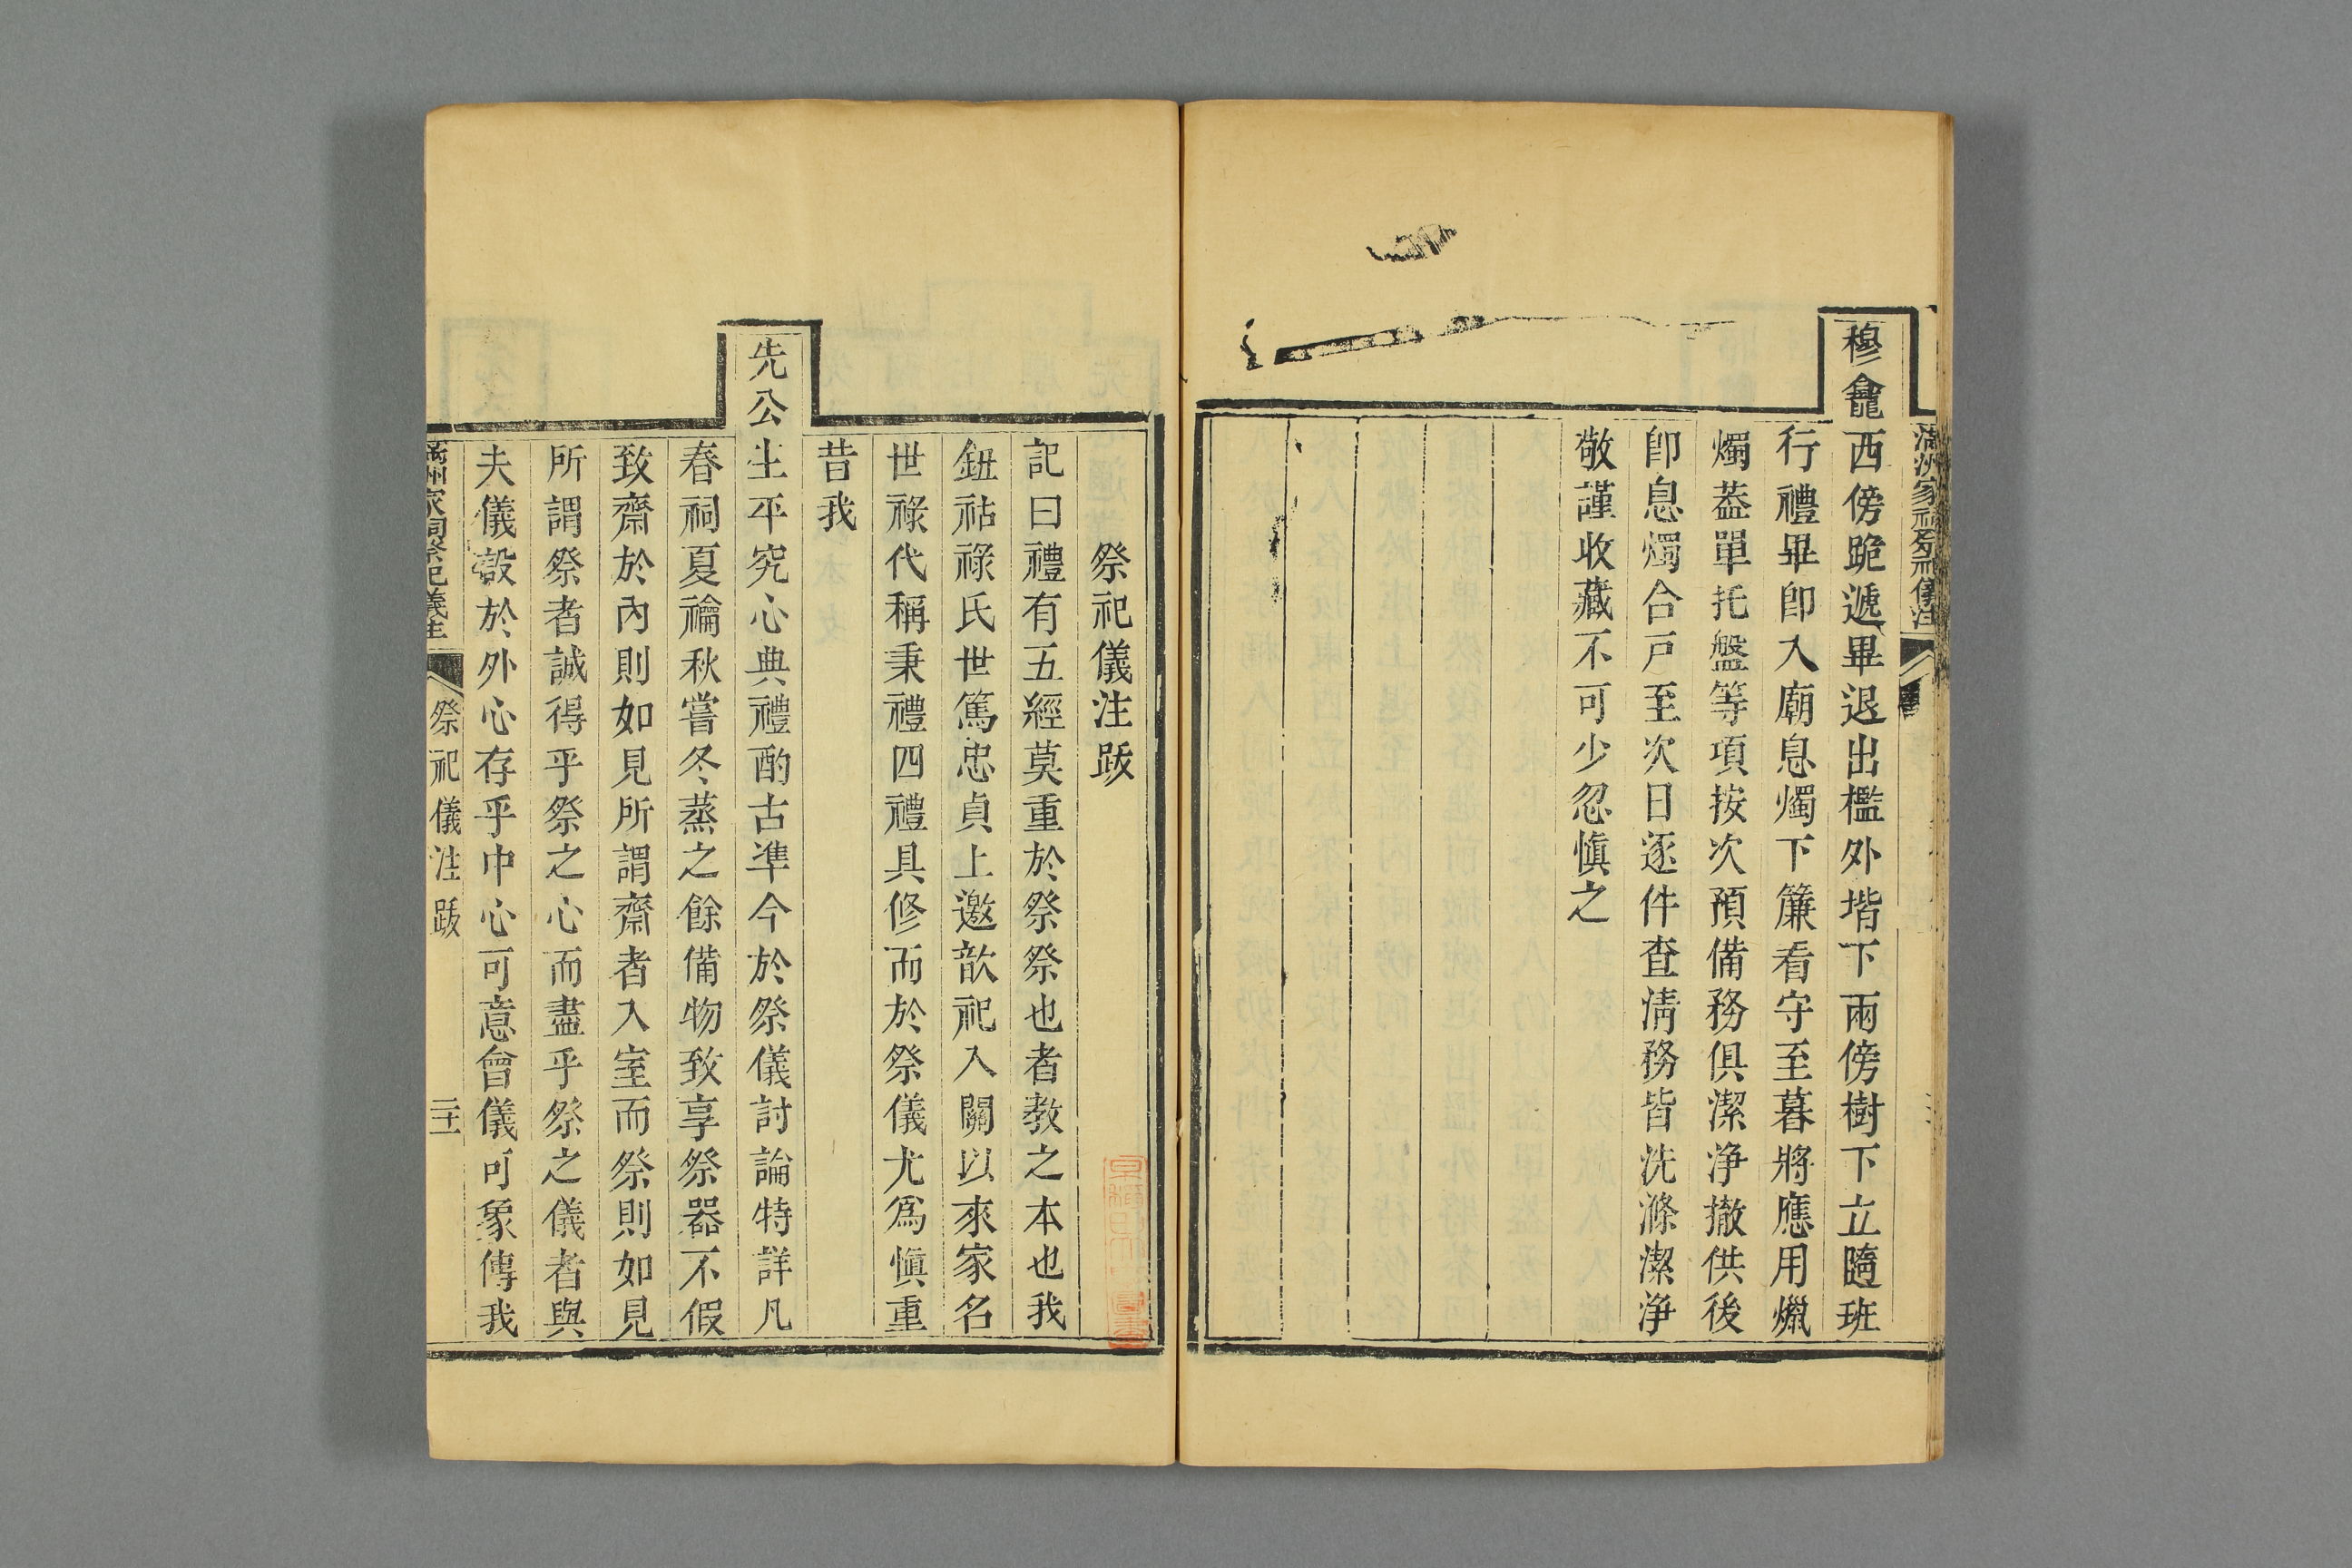 穆龕西傍跪遞畢退出檻外堦下兩傍樹下立隨班
行禮畢卽入廟息燭下簾看守至暮將應用爉
燭葢單托盤等項按次預備務俱潔淨撤供後
卽息燭合戸至次日逐件查淸務皆洗滌潔淨
敬謹收藏不可少忽愼之
祭祀儀注跋
記曰禮有五經莫重於祭祭也者教之本也我
鈕祜祿氏世篤忠貞上邀歆祀入關以來家名
世祿代稱秉禮四禮具修而於祭儀尤爲愼重
昔我
先公生平究心典禮酌古凖今於祭儀討論特詳凡
春祠夏禴秋嘗冬蒸之餘備物致享祭器不假
致齋於內則如見所謂齋者入室而祭則如見
所謂祭者誠得乎祭之心而盡乎祭之儀者與
夫儀設於外心存乎中心可意會儀可象傳我
祭祀儀注跋